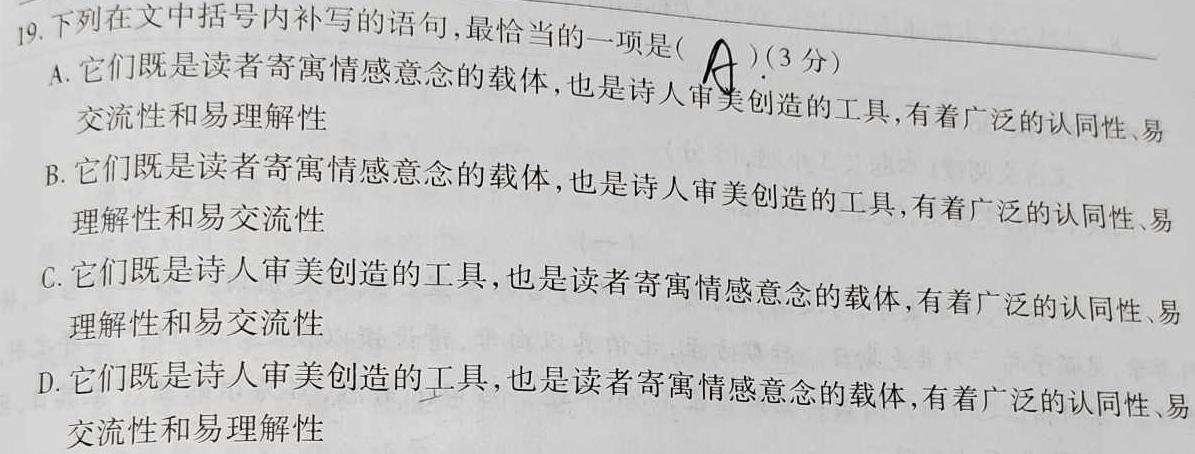 19.下列在文中括号内补写的语句,最恰当的一项是( A )(3分)
A.它们既是读者寄寓情感意念的载体,也是诗人审美创造的工具,有着广泛的认同性、易
交流性和易理解性
B.它们既是读者寄寓情感意念的载体,也是诗人审美创造的工具,有着广泛的认同性、易
理解性和易交流性
C.它们既是诗人审美创造的工具,也是读者寄寓情感意念的载体,有着广泛的认同性、易
理解性和易交流性
D.它们既是诗人审美创造的工具,也是读者寄寓情感意念的载体,有着广泛的认同性、易
交流性和易理解性